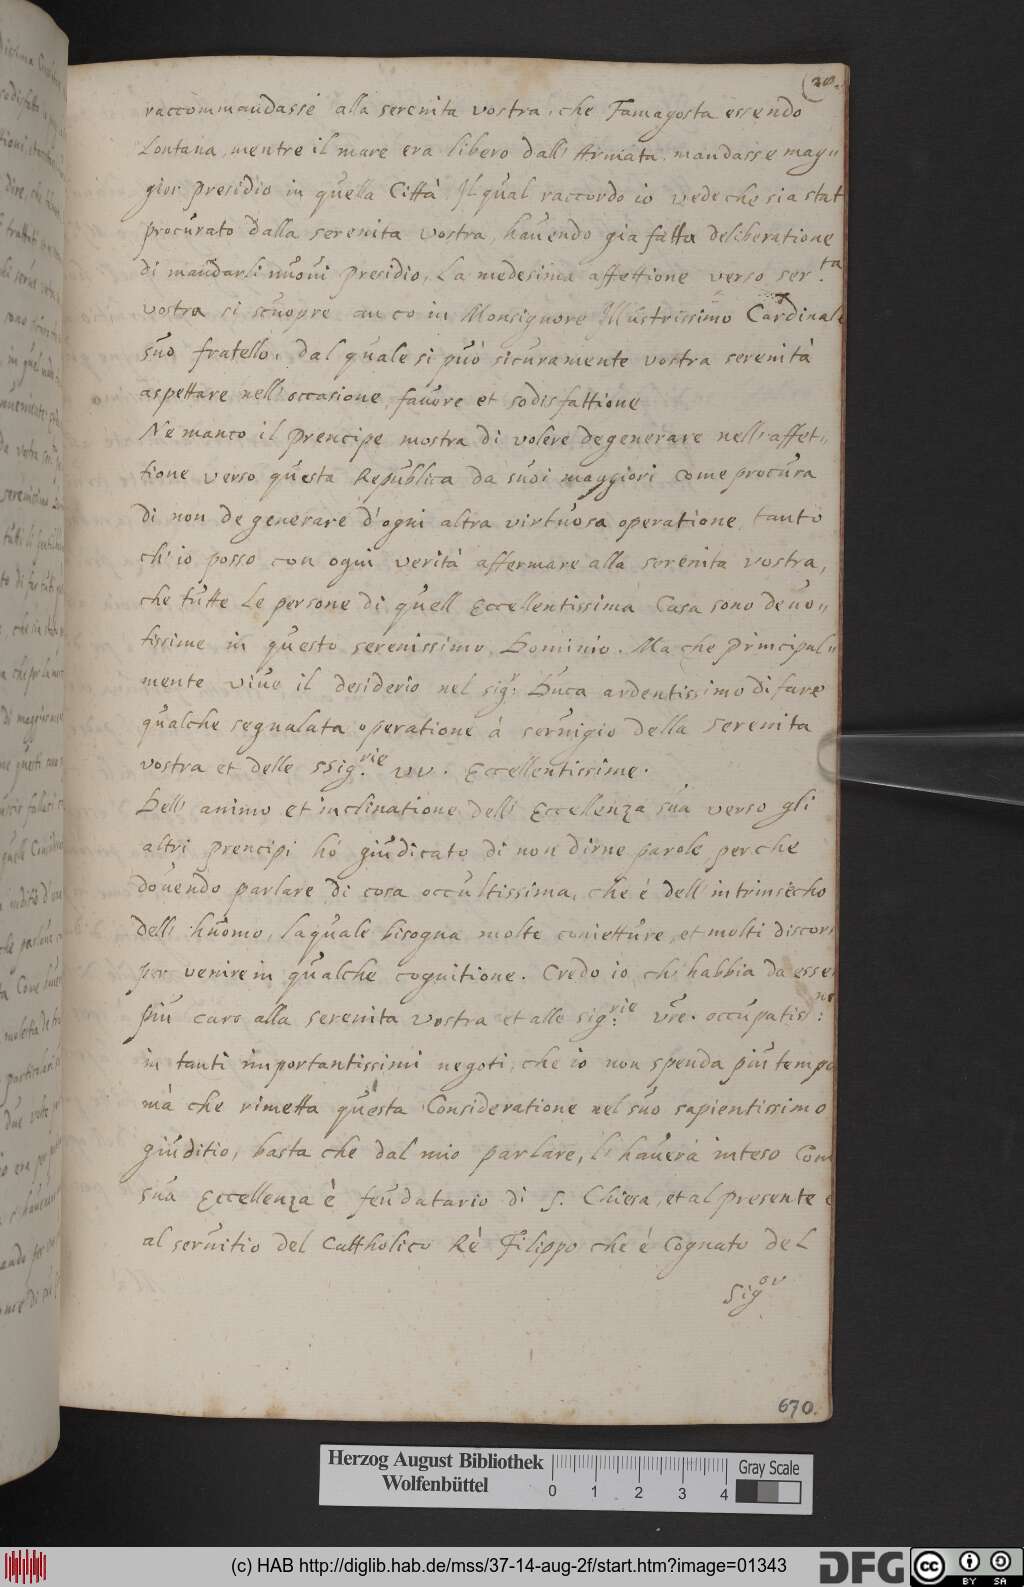 (28.
raccommandasse alla serenita vostra, che Famagosta essendo
Lontana, mentre il mare era libero dall' Armata, mandasse mag„
gior presidio in quella Città Il qual raccordo io vede che sia stat
procurato dalla serenita vostra, hauendo gia fatta deliberatione
di mandarli nuoui presidio. La medesima affettione verso ser.ta
vostra si scuopre anco in Monsignore Illustrissimo Cardinale
suo fratello, dal quale si può sicuramente vostra serenità
aspettare nell' occasione fauore et sodisfattione
Ne manco il prencipe mostra di volere degenerare nell' affet„
tione verso questa Republica da suoi maggiori come procura
di non degenerare d'ogni altra virtuosa operatione, tanto
ch' io posso con ogni verità affermare alla serenita vostra,
che tutte le persone di quell Eccellentissima Casa sono deuo„
tissime in questo serenissimo Dominio. Ma che principal„
mente viue il desiderio nel sig.r Duca ardentissimo di fare
qualche segnalata operatione à seruigio della serenita
vostra et delle SSig.rie VV. Eccellentissime.
Dell' animo et inclinatione dell' Eccellenza sua verso gli
altri prencipi hò giudicato di non dirne parole perche
douendo parlare di cosa occultissima, che è dell' intrinsecho
dell' huomo, laquale bisogna molte conietture, et molti discors
per venire in qualche cognitione. Credo io, ch' habbia da esser
più caro alla serenita vostra et alle sig.rie vre. occupatis.me
in tanti importantissimi negoti, che io non spenda piu tempo
mà che rimetta questa Consideratione nel suo sapientissimo
giuditio, basta che dal mio parlare, l' hauerà inteso Com
sua Eccellenza è feudatario di S. Chiesa, et al presente è
al seruitio del Cattholico Rè Filippo che è Cognato del
Sig.or
670.
Herzog August Bibliothek
Wolfenbüttel
0 1 2 3 4
Gray Scale
(c) HAB http://diglib.hab.de/mss/37-14-aug-2f/start.htm?image=01343
DFG
cc BY SA